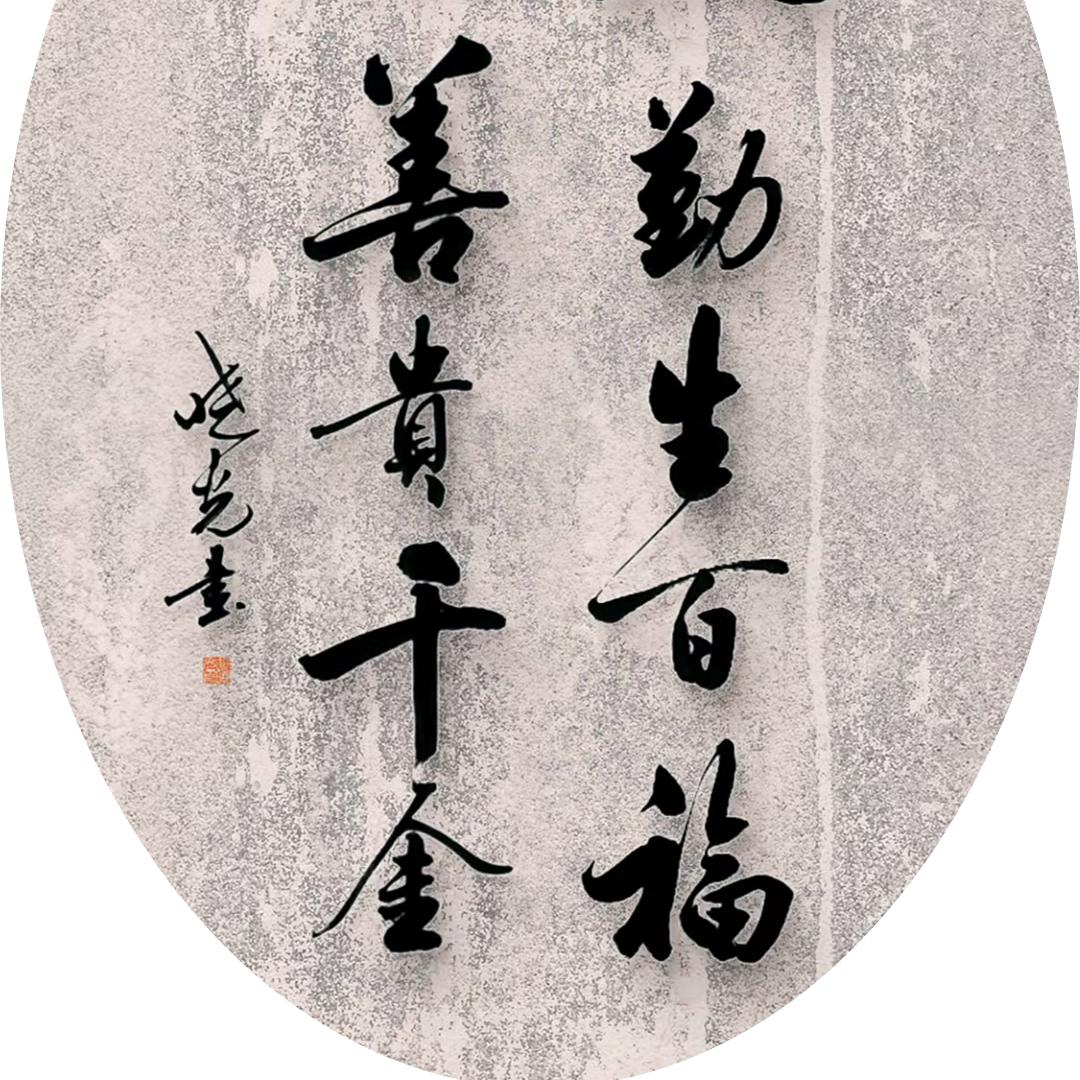 勤生百福
善貴千金
曉光書